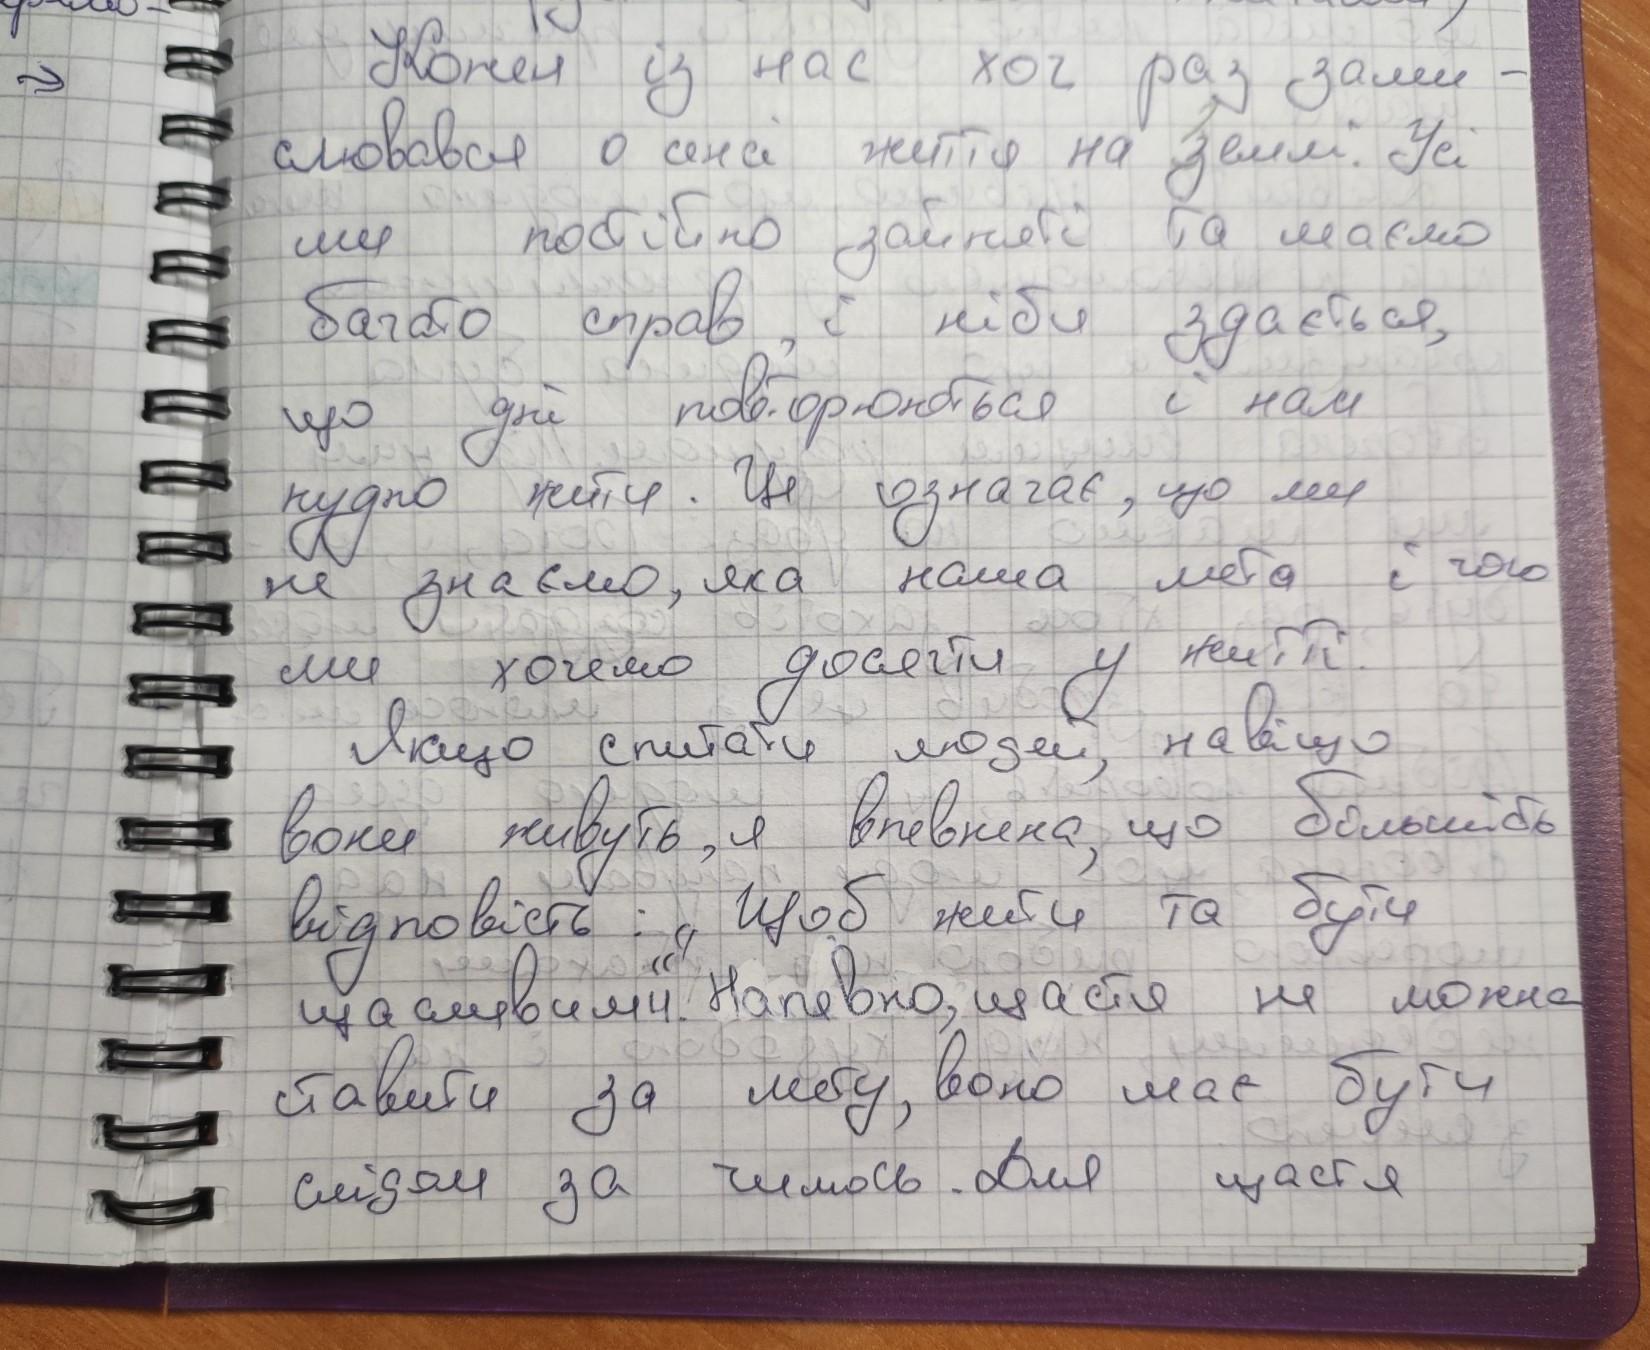 Кожен із нас хоч раз зами-
слювався о сенсі життя на землі. Усі
ми постійно зайняті та маємо
багато справ, і ніби здається,
що дні повторюються і нам
нудно жити. Це означає, що ми
не знаємо, яка наша мета і чого
ми хочемо досягти у житті.
Якщо спитати людей, навіщо
вони живуть, я впевнена, що більшість
відповість: „Щоб жити та бути
щасливими“. Напевно, щастя не можна
ставити за мету, воно має бути
слідом за чимось. Для щастя